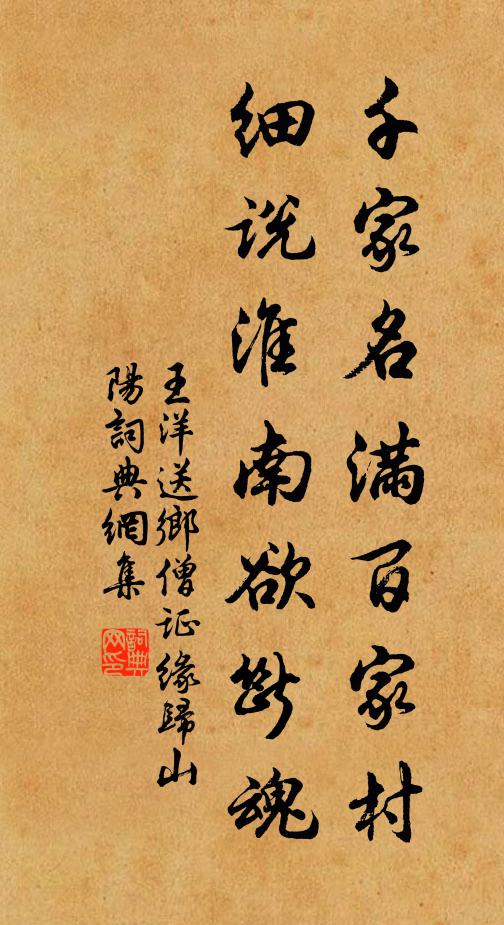 千家名滿百家村
細說淮南欲斷魂
王洋送鄉僧证緣歸山
陽詞典網集
詞典
网印